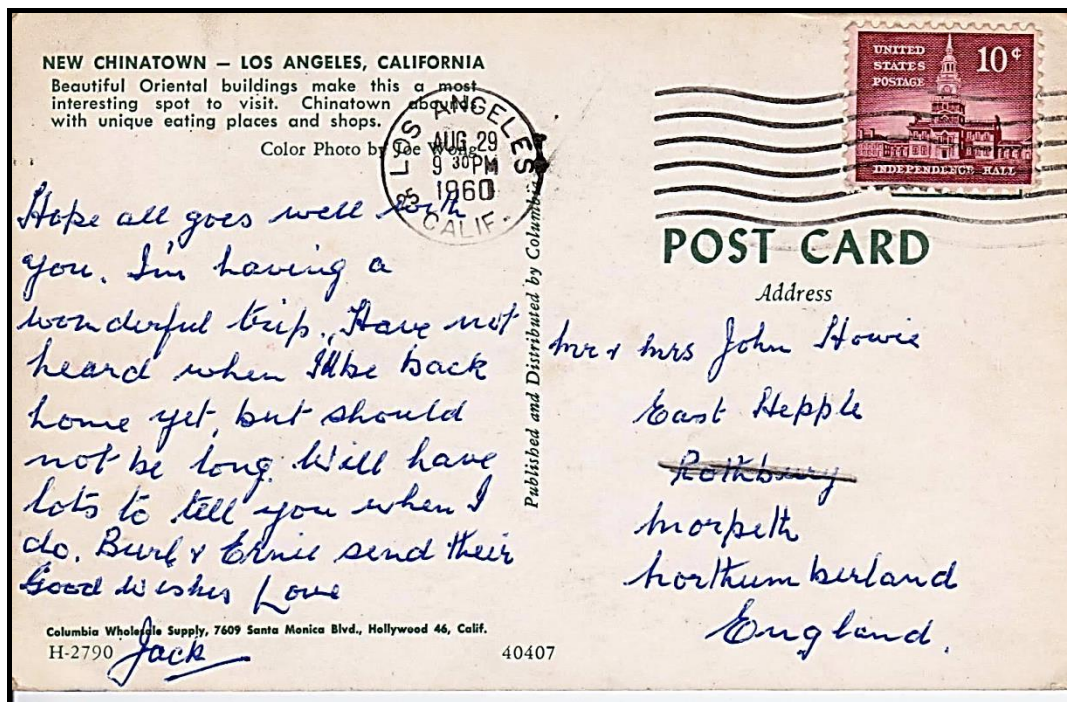 NEW CHINATOWN — LOS ANGELES, CALIFORNIA
Beautiful Oriental buildings make this a most
interesting spot to visit. Chinatown abounds
with unique eating places and shops.
Color Photo by Joe Wong
LOS ANGELES
AUG 29
9 30 PM
1960
CALIF.
UNITED
STATES
POSTAGE
10¢
INDEPENDENCE HALL
Hope all goes well with
you. I'm having a
wonderful trip. Have not
heard when I'll be back
home yet, but should
not be long. Will have
lots to tell you when I
do. & Ernie send their
Good Wishes Love
Jack
Columbia Wholesale Supply, 7609 Santa Monica Blvd., Hollywood 46, Calif.
H-2790
40407
Published and Distributed by Columbia
POST CARD
Address
Mr & Mrs John Howie
East Hepple
Rothbury
Morpeth
Northumberland
England.